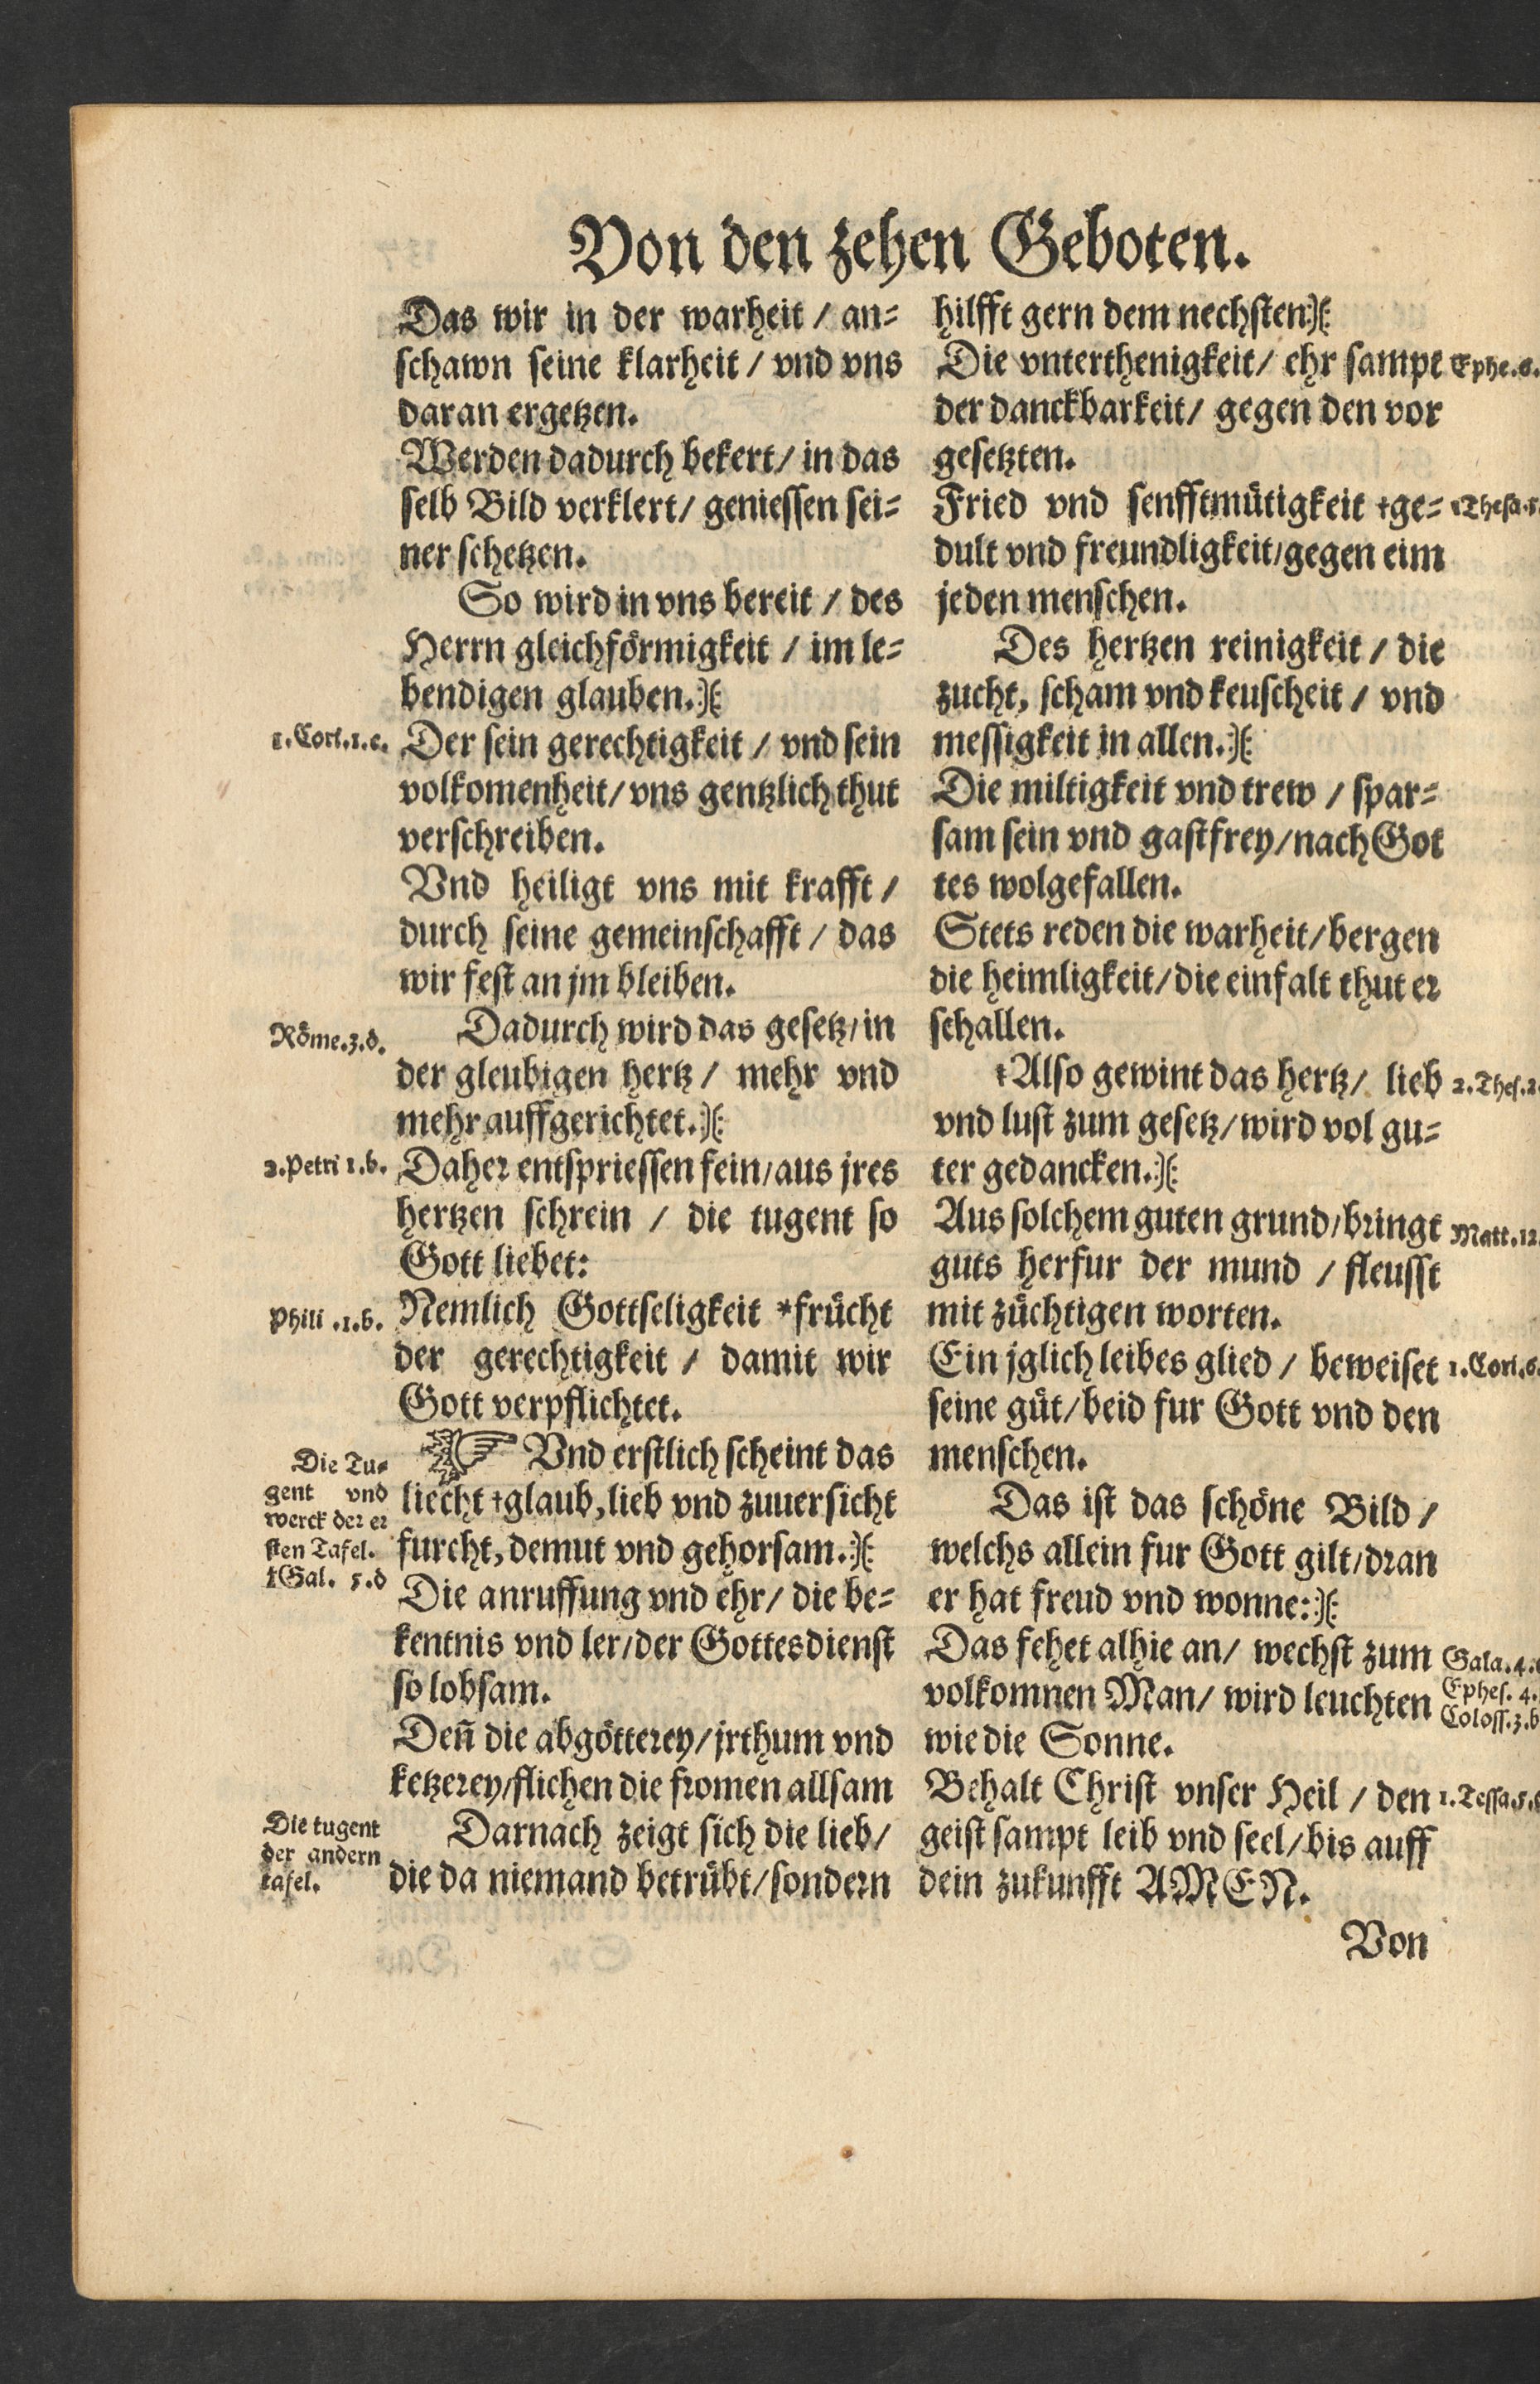 Von den zehen Geboten.
Das wir in der warheit / an⸗
schawn seine klarheit / vnd vns
daran ergetzen.
Werden dadurch bekert / in das
selb Bild verklert / geniessen sei⸗
ner schetzen.
So wird in vns bereit / des
Herrn gleichförmigkeit / im le⸗
bendigen glauben.
1. Cori. 1. e.
Der sein gerechtigkeit / vnd sein
volkomenheit / vns gentzlich thut
verschreiben.
Vnd heiligt vns mit krafft /
durch seine gemeinschafft / das
wir fest an jm bleiben.
Röme. 3. d.
Dadurch wird das gesetz / in
der gleubigen hertz / mehr vnd
mehr auffgerichtet.
2. Petri 1. b.
Daher entspriessen fein / aus jres
hertzen schrein / die tugent so
Gott liebet:
Phili. 1. b.
Nemlich Gottseligkeit *frücht
der gerechtigkeit / damit wir
Gott verpflichtet.
Die Tu⸗
gent vnd
werck der er
sten Tafel.
‡Gal. 5. d
☞ Vnd erstlich scheint das
liecht †glaub, lieb vnd zuuersicht
furcht, demut vnd gehorsam.
Die anruffung vnd ehr / die be⸗
kentnis vnd ler / der Gottesdienst
so lobsam.
Deñ die abgötterey / jrthum vnd
ketzerey / fliehen die fromen allsam
Die tugent
der andern
tafel.
Darnach zeigt sich die lieb /
die da niemand betrübt / sondern
hilfft gern dem nechsten
Die vnterthenigkeit / ehr sampt
Ephe. 6.
der danckbarkeit / gegen den vor
gesetzten.
Fried vnd senfftmütigkeit †ge⸗
1Thess. 5
dult vnd freundligkeit / gegen eim
jeden menschen.
Des hertzen reinigkeit / die
zucht, scham vnd keuscheit / vnd
messigkeit in allen.
Die miltigkeit vnd trew / spar⸗
sam sein vnd gastfrey / nach Got
tes wolgefallen.
Stets reden die warheit / bergen
die heimligkeit / die einfalt thut er
schallen.
‡Also gewint das hertz / lieb
2. Thes. 2.
vnd lust zum gesetz / wird vol gu⸗
ter gedancken.
Aus solchem guten grund / bringt
Matt. 12.
guts herfur der mund / fleusst
mit züchtigen worten.
Ein jglich leibes glied / beweiset
1. Cori. 6.
seine güt / beid fur Gott vnd den
menschen.
Das ist das schöne Bild /
welchs allein fur Gott gilt / dran
er hat freud vnd wonne:
Das fehet alhie an / wechst zum
Gala. 4.
volkomnen Man / wird leuchten
Ephes. 4.
Coloss. 3. b
wie die Sonne.
Behalt Christ vnser Heil / den
1. Tessa. 5.
geist sampt leib vnd seel / bis auff
dein zukunfft AMEN.
Von